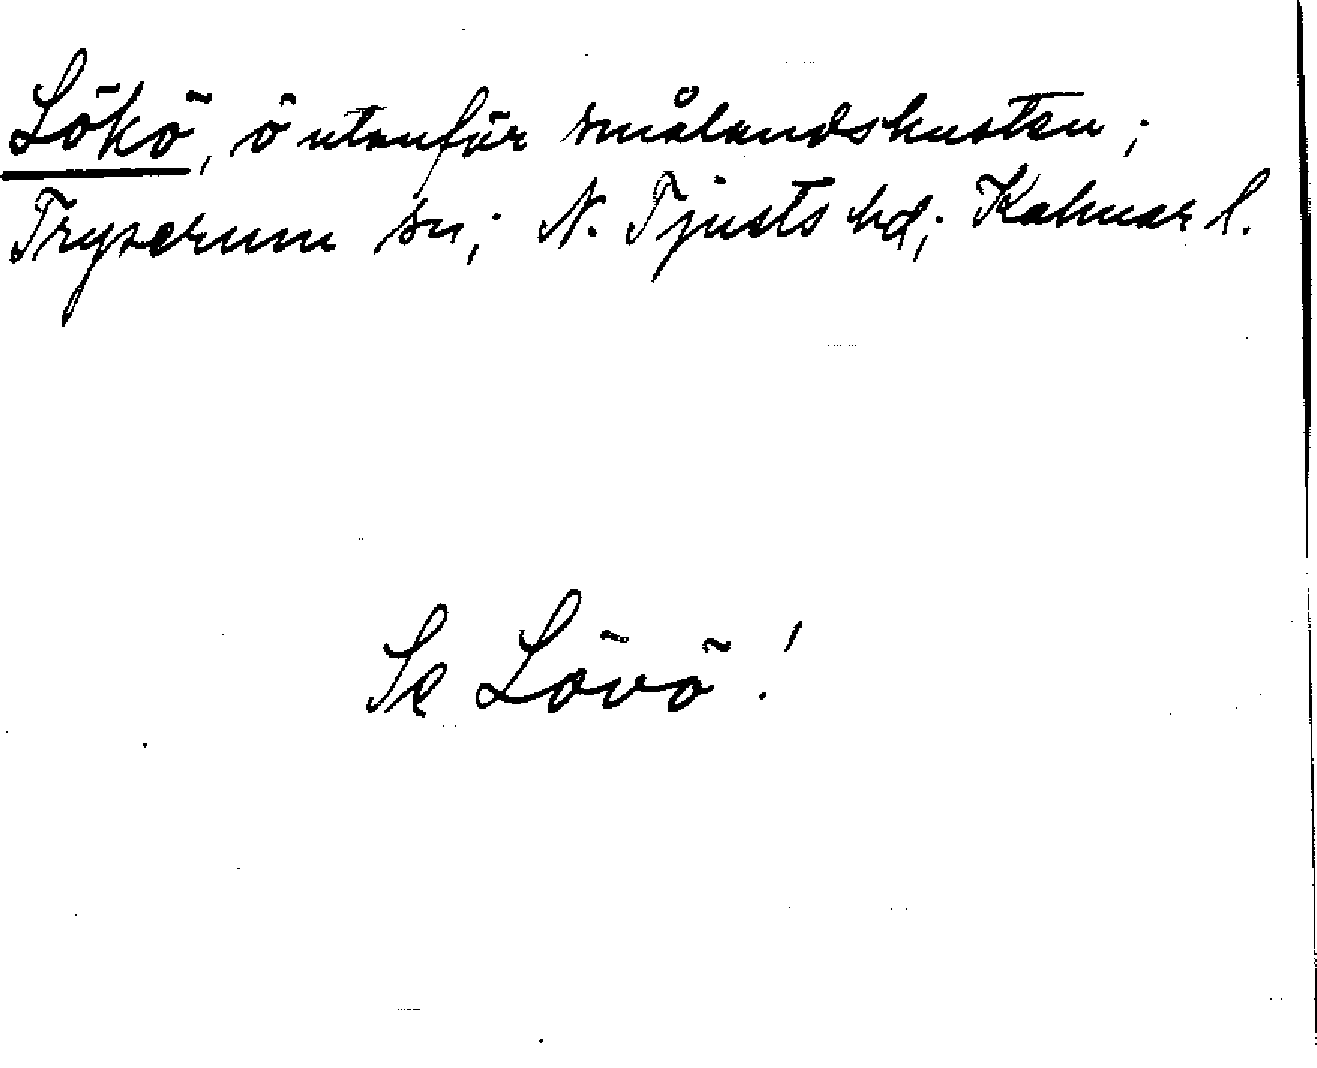 Lökö, ö utanför smålandskusten;
Tryserum sn; N. Tjusts hd; Kalmar l.
Se Lövö!